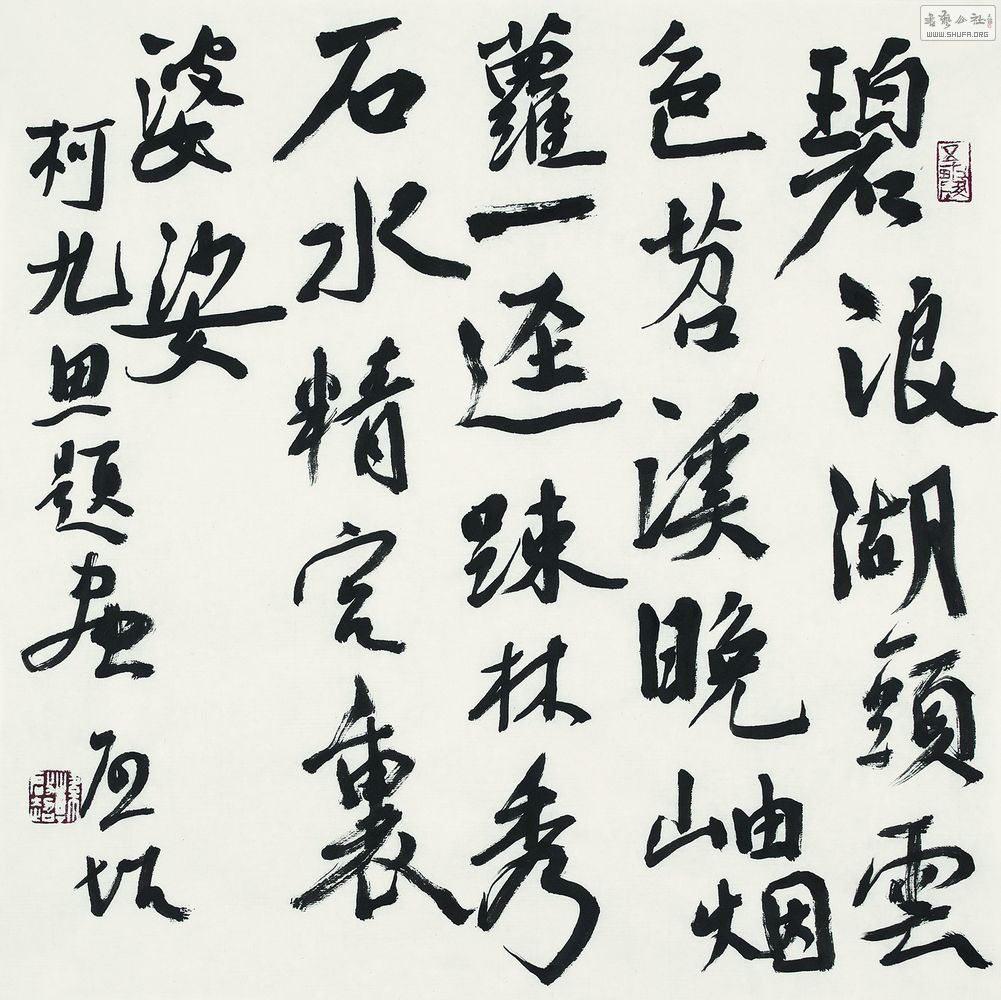 碧浪湖頭雲
色苕溪晚岫烟
蘿一逕踈林秀
石水精宫裏
婆娑
柯九思題畫
书艺公社
WWW.SHUFA.ORG